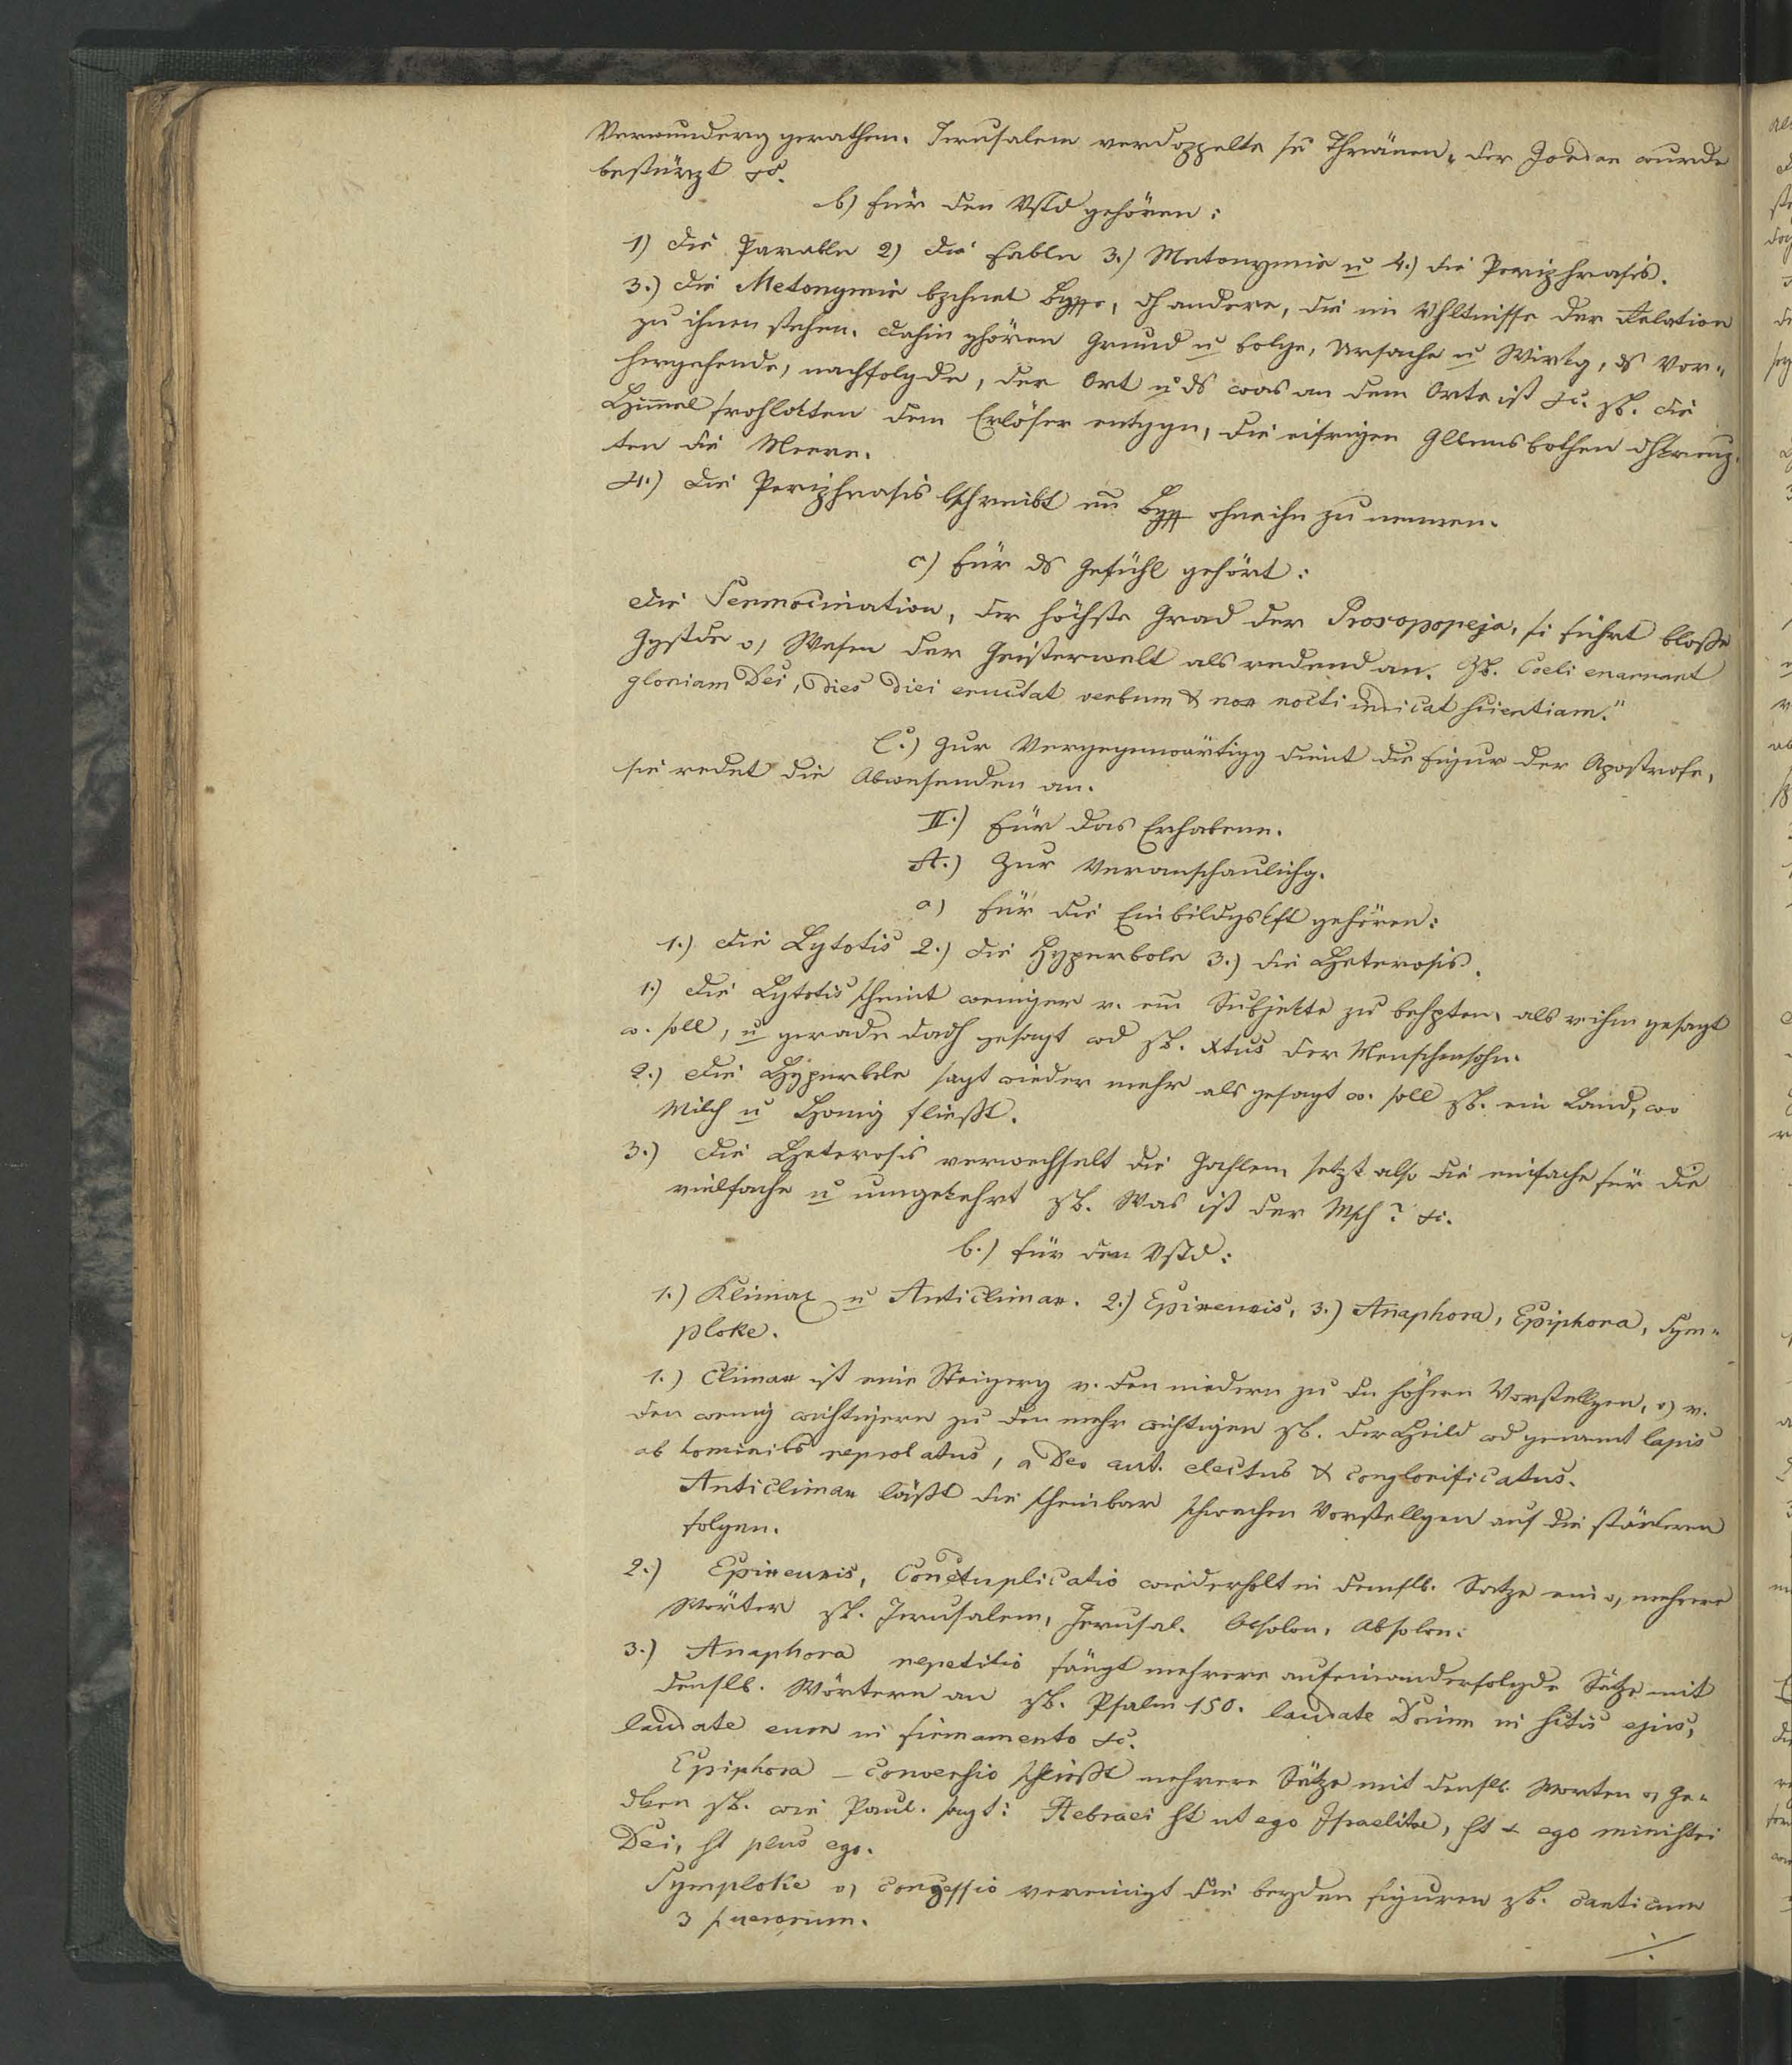 Verwunderg gerathen. Jerusalem verdoppelte se Thränen, der Jordan wurde
bestürzt &c.
b) für den Vstd gehören:
1) die Parabln 2) die Fabln 3.) Metonymie u 4.) die Periphrasis.
3.) die Metonymie bzchnet Bgffe, dh andere, die im Vhltnisse der Relation
zu ihnen stehen. dahin ghören Grund u Folge, Ursache u Wirkg, ds Vor-
hergehende, nachfolgde, der Ort u ds was an dem Orte ist &c. zb. die
Himmel frohlokten dem Erlöser entggn, die eifrigen Glbensbothen dhkreuz-
ten die Meere.
4.) die Periphrasis bschreibt ein Bgff ohne ihn zu nennen.
c) für ds Gefühl gehört:
die Sermocination, der höchste Grad der Prosopopeja, si führt bloße
Ggstde o, Wesen der Geisterwelt als redend an. Zb. Coeli enarrant
gloriam Dei, dies diei eructat verbum & nox nocti indicat scientiam."
C.) Zur Vergegenwärtigg dient die Figur der Apostrofe,
sie redet die Abwesenden an.
II.) Für das Erhabene.
A.) Zur Veranschaulichg.
a) für die Einbildgskft gehören:
1.) die Lytotis 2.) die Hyperbole 3.) die Heterosis.
1.) die Lytotis scheint weniger v. ein Subjekte zu behpten, als v ihm gesagt
w. soll, u gerade dadh gesagt wd zb. Xtus der Menschensohn.
2.) die Hyperbole sagt wieder mehr als gesagt w. soll zb. ein Land, wo
Milch u Honig fließt.
3.) die Heterosis verwechselt die Zahlen, setzt also die einfache für die
vielfache u umgekehrt zb. Was ist der Msch? &c.
b.) für den Vstd:
1.) Klimax u Anticlimax. 2.) Epixeuxis, 3.) Anaphora, Epiphora, Sym-
ploke.
1.) Climax ist eine Steigerg v. den niedern zu dn höhern Vorstellgen, o, v.
den wenig wichtigern zu den mehr wichtigen zb. der Heild wd genannt lapis
ab hominibs reprobatus, a Deo aut. electus & conglorificatus.
Anticlimax läßt die scheinbar schwachen Vorstellgen auf die stärkeren
folgen.
2.) Epixeuxis, Conduplicatio wiederholt in demslb. Satze ein o, mehrere
Wörter zb. Jerusalem, Jerusal. Absolon, Absolon:
3.) Anaphora repetitio fängt mehrere aufeinanderfolgde Sätze mit
denslb. Wörtern an zb. Psalm 150. laudate Dominn in sctis ejus,
laudate eum in firmamento &c.
Epiphora – conversio schließt mehrere Sätze mit denslb. Worten o, Ge-
dken zb. wie Paul. sagt: Hebraei st ut ego Israelitae, st & ego ministri
Dei, st plus ego.
Symploke o, congessio vereinigt die beyden Figuren zb. canticum
3 puerorum.
./.